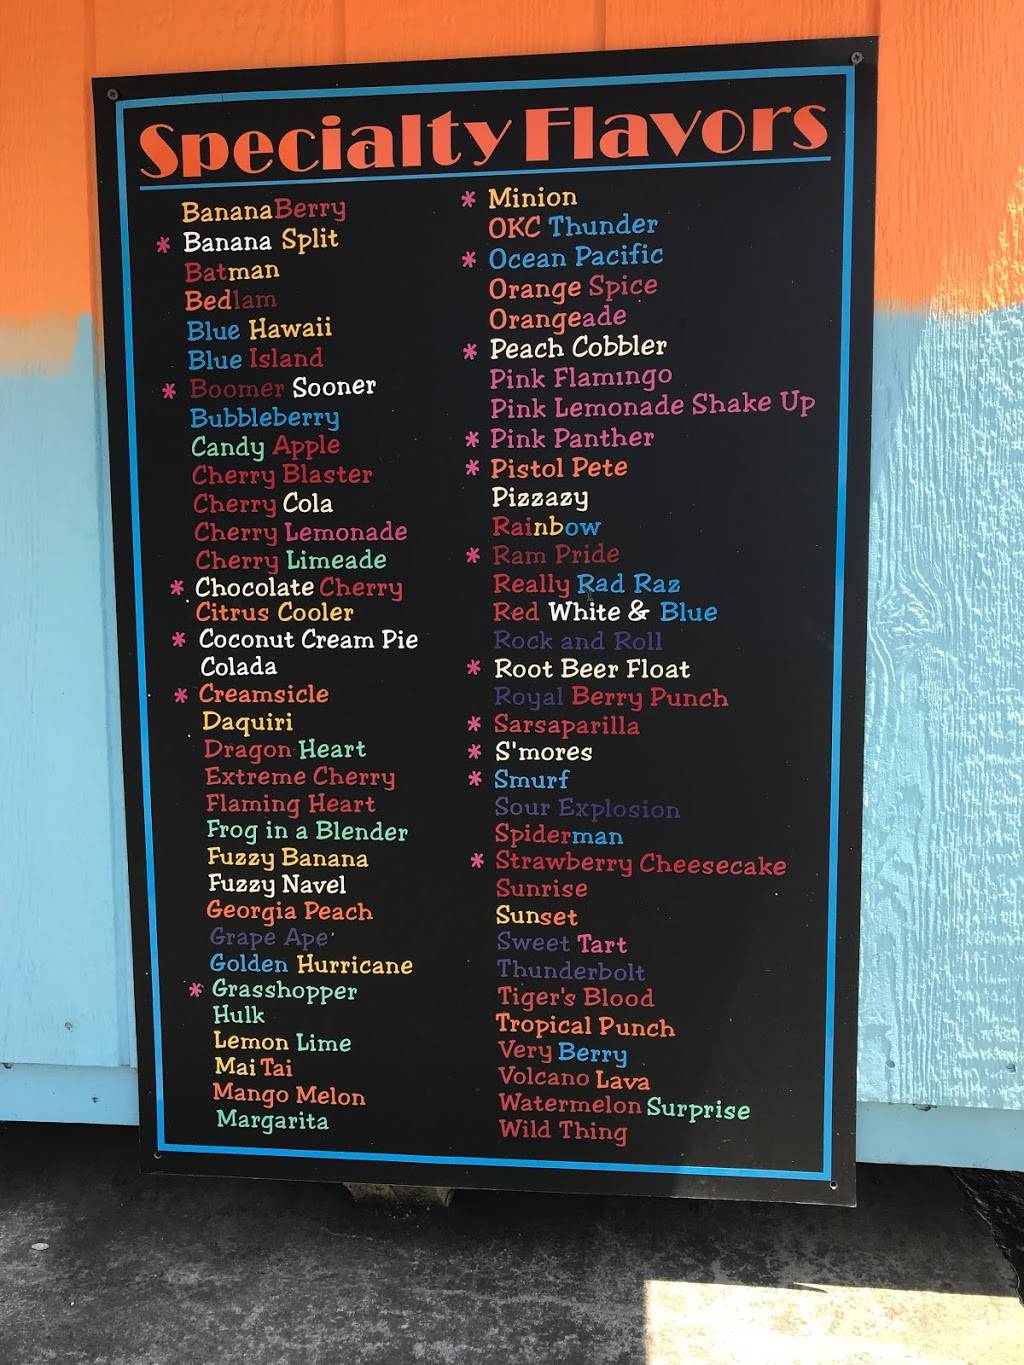 Specialty Flavors
BananaBerry
* Banana Split
Batman
Bedlam
Blue Hawaii
Blue Island
* Boomer Sooner
Bubbleberry
Candy Apple
Cherry Blaster
Cherry Cola
Cherry Lemonade
Cherry Limeade
* Chocolate Cherry
Citrus Cooler
* Coconut Cream Pie
Colada
* Creamsicle
Daquiri
Dragon Heart
Extreme Cherry
Flaming Heart
Frog in a Blender
Fuzzy Banana
Fuzzy Navel
Georgia Peach
Grape Ape
Golden Hurricane
* Grasshopper
Hulk
Lemon Lime
Mai Tai
Mango Melon
Margarita
* Minion
OKC Thunder
* Ocean Pacific
Orange Spice
Orangeade
* Peach Cobbler
Pink Flamingo
Pink Lemonade Shake Up
* Pink Panther
* Pistol Pete
Pizzazy
Rainbow
* Ram Pride
Really Rad Raz
Red White & Blue
Rock and Roll
* Root Beer Float
Royal Berry Punch
* Sarsaparilla
* S'mores
* Smurf
Sour Explosion
Spiderman
* Strawberry Cheesecake
Sunrise
Sunset
Sweet Tart
Thunderbolt
Tiger's Blood
Tropical Punch
Very Berry
Volcano Lava
Watermelon Surprise
Wild Thing